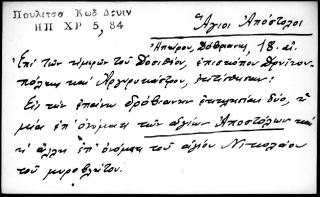 Πουλίτσα Κωδ Δρυιν
ΗΠ ΧΡ 5, 84
Ἅγιοι Ἀπόστολοι
Ἀπείρου, 18. αἰ.
Ἐπὶ τῶν ἡμερῶν τοῦ Δοσιθέου, ἐπισκόπου Δρυϊνου-
πόλεως καὶ Ἀργυροκάστρου, ἐκτίσθησαν:
Εἰς τὴν ἐπάνω δρόβιανην ἐκκλησίαι δύο, ἡ
μία ἐπ' ὀνόματι τῶν ἁγίων Ἀποστόλων καὶ
ἡ ἄλλη ἐπ' ὀνόματι τοῦ ἁγίου Νικολάου
τοῦ μυροβλύτου.